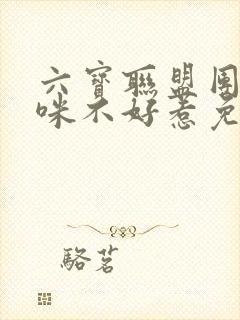 六寶聯盟團
咪不好惹免
駱茗